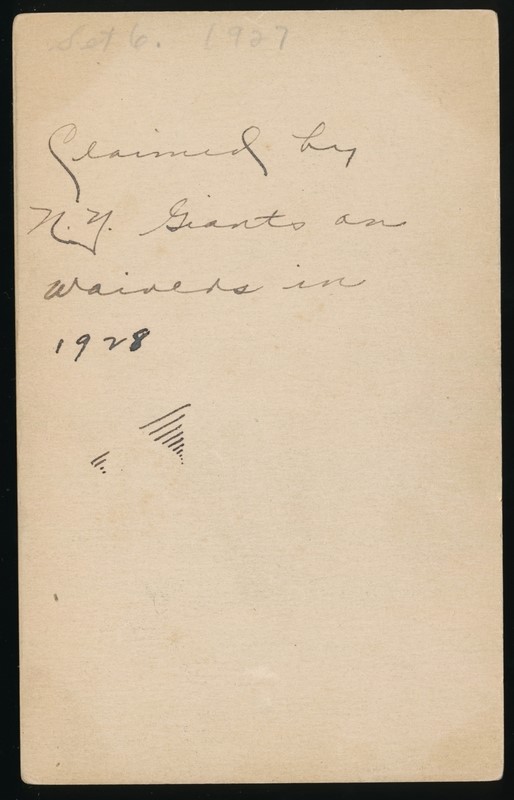 Set 6. 1927
Claimed by
N.Y. Giants on
waivers in
1928